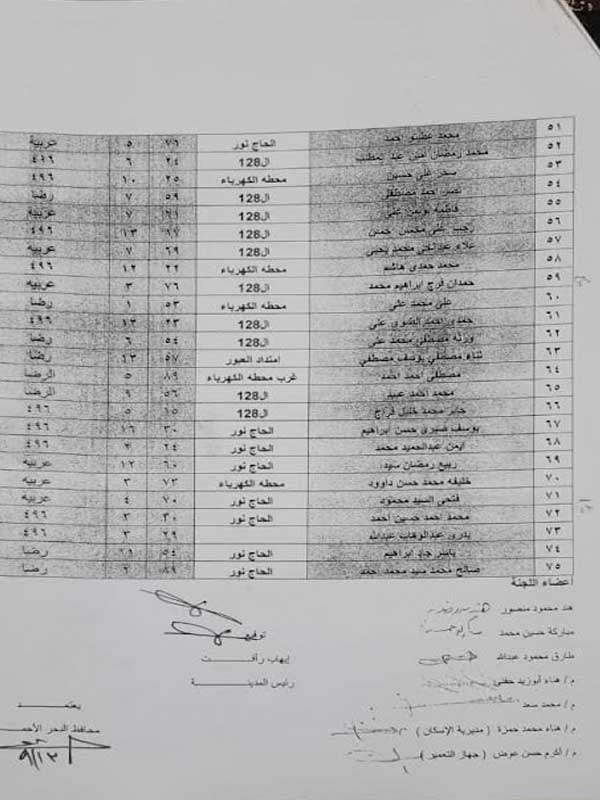 ٥١ محمد عطيتو احمد الحاج نور ٧٦ ٥ عربية
٥٢ محمد رمضان امين عبد المطلب ال128 ٢٤ ٦ ٤٩٦
٥٣ سحر على حسين محطه الكهرباء ٢٥ ١٠ ٤٩٦
٥٤ احمد مصطفى ال128 ٥٩ ٧ رضا
٥٥ فاطمه يونس على ال128 ٦١ ٧ عربيه
٥٦ رجب على حسن ال128 ١٣ ٤٩٦
٥٧ علاء محمد يحيى ال128 ٦٩ ٧ عربيه
٥٨ محمد حمدى هاشم محطه الكهرباء ٢٢ ١٢ ٤٩٦
٥٩ حمدان فرج ابراهيم محمد ال128 ٧٦ ٣ عربيه
٦٠ على محمد على محطه الكهرباء ٥٣ ١ رضا
٦١ حمدى احمد على ال128 ٢٣ ١٣ ٤٩٦
٦٢ مصطفي محمد على ال128 ٥٤ ٦ رضا
٦٣ ثناء مصطفي يوسف مصطفي امتداد العبور ٥٧ ١٣ رضا
٦٤ مصطفى احمد احمد غرب محطه الكهرباء ٨٩ ٥ الرضا
٦٥ محمد احمد عبيد ال128 ٥٦ ٩ الرضا
٦٦ جابر محمد خليل فراج ال128 ١٥ ٥ ٤٩٦
٦٧ يوسف صبرى حسن ابراهيم الحاج نور ٣٠ ١٦ ٤٩٦
٦٨ ايمن عبدالحميد محمد الحاج نور ٢٤ ٤ ٤٩٦
٦٩ ربيع رمضان سيد الحاج نور ٦٠ ١٢ عربيه
٧٠ خليفه محمد حسن داوود محطه الكهرباء ٧٣ ٣ عربيه
٧١ فتحى السيد محمود الحاج نور ٧٠ ٤ عربيه
٧٢ محمد احمد حسين احمد الحاج نور ٣٠ ٣ ٤٩٦
٧٣ بدرى عبدالوهاب عبدالله ٢٩ ٣ ٤٩٦
٧٤ ياسر جابر ابراهيم الحاج نور ٥٤ ١١ رضا
٧٥ صالح محمد سيد محمد احمد الحاج نور ٨٩ ٢ رضا
أعضاء اللجنة
هند محمود منصور
مباركة حسين محمد
طارق محمود عبدالله
م / هناء أبوزيد حفنى
م / محمد سعد
م / هناء محمد حمزة ( مديرية الإسكان )
م / أكرم حسن عوض ( جهاز التعمير )
توقيع
إيهاب رأفت
رئيس المدينة
يعتمد
محافظ البحر الأحمر